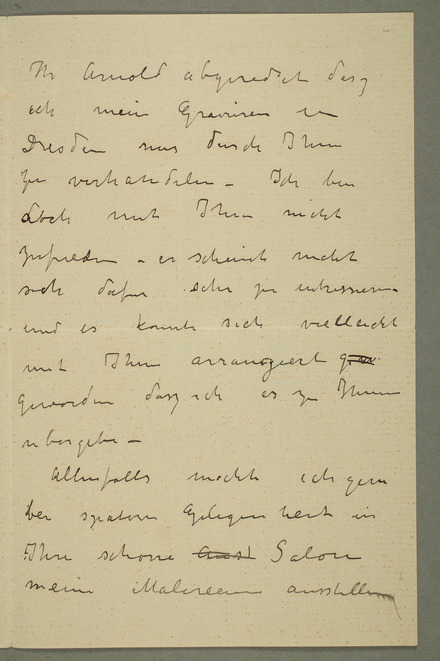 Hr Arnold abgeredet dasz
ich mein Gravuren in
Dresden nur durch Ihm
zu verhandeln – Ich bin
doch mit Ihm nicht
zufrieden – er scheint nicht
sich dafur sehr zu interessieren –
und es konnte sich vielleicht
mit Ihm arrangiert
geworden dasz ich es zu Ihnen
ubergebe –
Allenfalls mochte ich gern
bei spatern Gelegenheit in
Ihre schone Salon
meine Malereien ausstellen